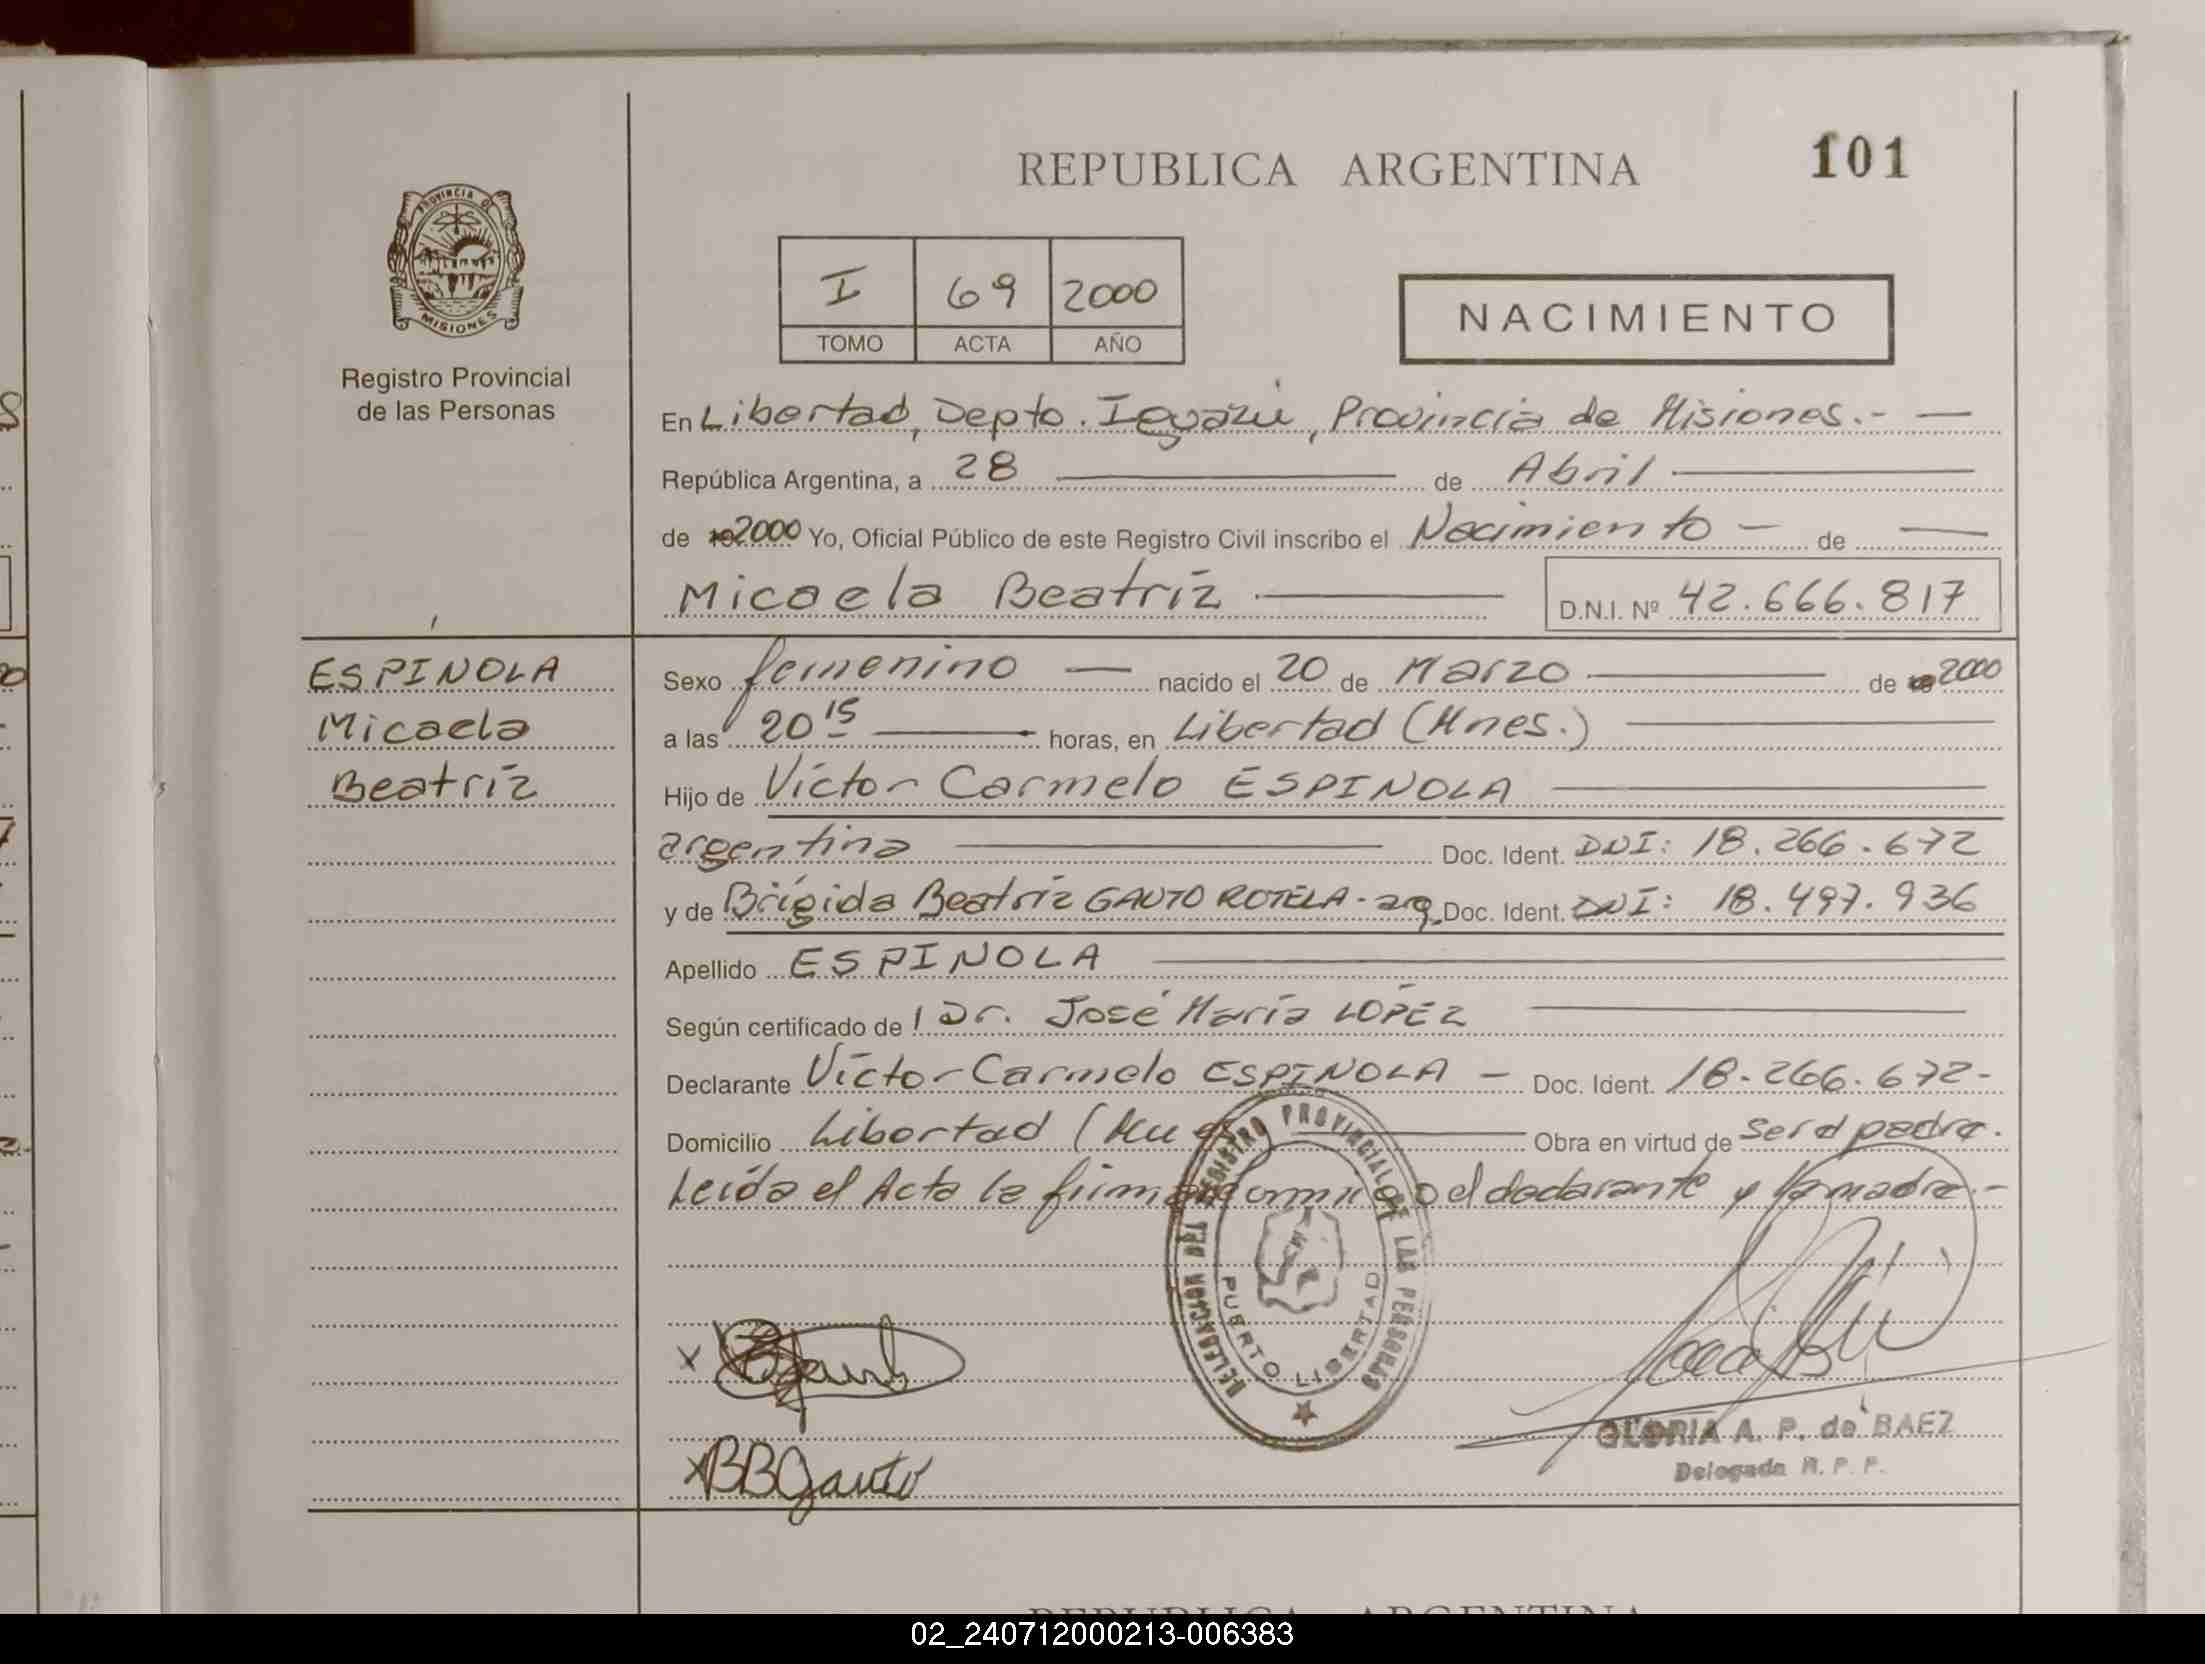 REPUBLICA ARGENTINA
101
PROVINCIA D
MISIONES
Registro Provincial
de las Personas
I 69 2000
TOMO ACTA AÑO
NACIMIENTO
En Libertad, Depto. Iguazú, Provincia de Misiones.- —
República Argentina, a 28 — de Abril —
de 2000 Yo, Oficial Público de este Registro Civil inscribo el Nacimiento — de —
Micaela Beatríz — D.N.I. Nº 42.666.817
ESPINOLA
Micaela
Beatríz
Sexo femenino — nacido el 20 de Marzo — de 2000
a las 20 15 — horas, en Libertad (Mnes.) —
Hijo de Víctor Carmelo ESPINOLA —
argentina — Doc. Ident. DNI: 18.266.672
y de Brígida Beatríz GAUTO ROTELA - arg. Doc. Ident. DNI: 18.497.936
Apellido ESPINOLA —
Según certificado de Dr. José María LOPEZ —
Declarante Víctor Carmelo ESPINOLA — Doc. Ident. 18.266.672-
Domicilio Libertad ( — Obra en virtud de ser el padre.
Leída el Acta la firman conmigo el declarante y la madre.-
DELEGACION DEL REGISTRO PROVINCIAL DE LAS PERSONAS
PUERTO LIBERTAD
X
X BBGauto
GLORIA A. P. de BAEZ
Delegada R. P. P.
REPUBLICA ARGENTINA
02_240712000213-006383